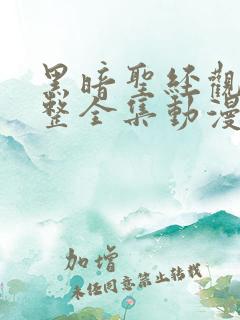 黑暗聖經觀
整全集動漫
加增
未经同意禁止转载